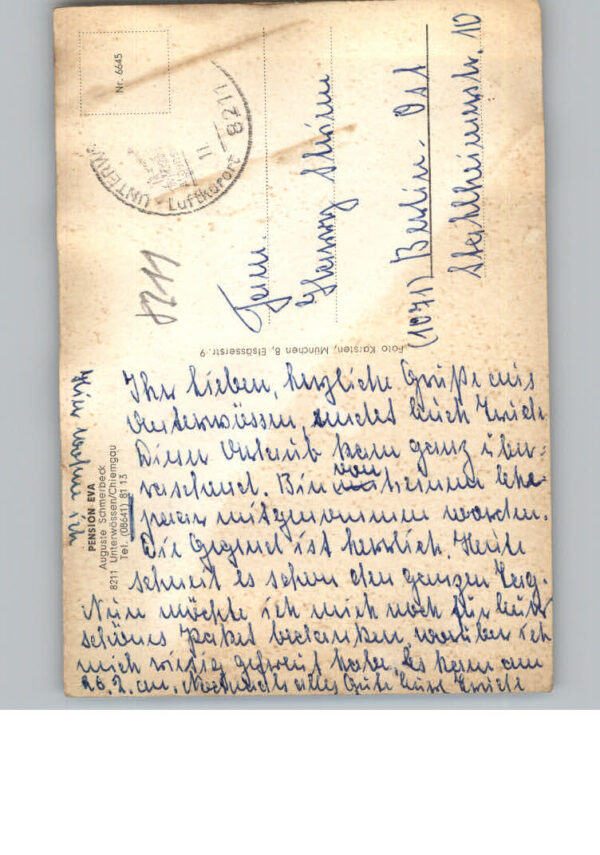 Nr. 6645
UNTERW
11
8211
Luftkurort
8211
Fam.
(1071) Berlin-Ost
Stahlheimerstr. 10
Foto Karsten, München 8, Elsässerstr. 9
Hier wohne ich
PENSION EVA
Auguste Schmerbeck
8211 Unterwössen/Chiemgau
Tel. (08641) 81 13
Ihr Lieben, herzliche Grüße aus
Unterwössen, sendet Euch
Dieser Urlaub kam ganz über-
raschend. Bin von einem Ehe-
paar mitgenommen worden.
Die Gegend ist herrlich. Heute
schneit es schon den ganzen Tag.
Nun möchte ich mich noch für Euer
schönes Paket bedanken worüber ich
mich riesig gefreut habe. Es kam am
26.2. an. Nochmals alles Gute Eure